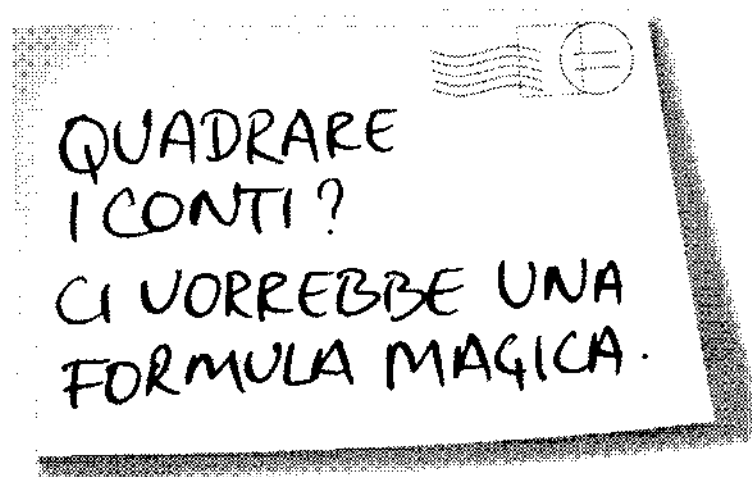 QUADRARE
I CONTI?
CI VORREBBE UNA
FORMULA MAGICA.